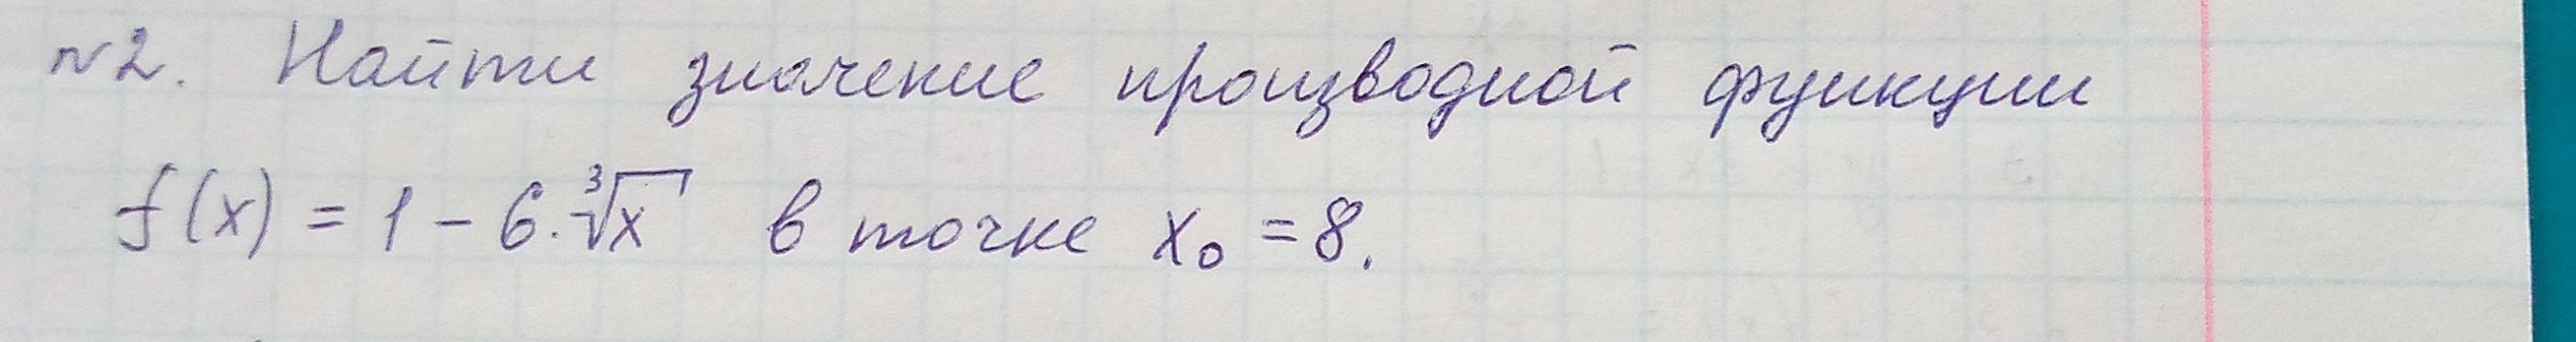 №2. Найти значение производной функции
f(x) = 1 - 6·∛x в точке x₀ = 8.